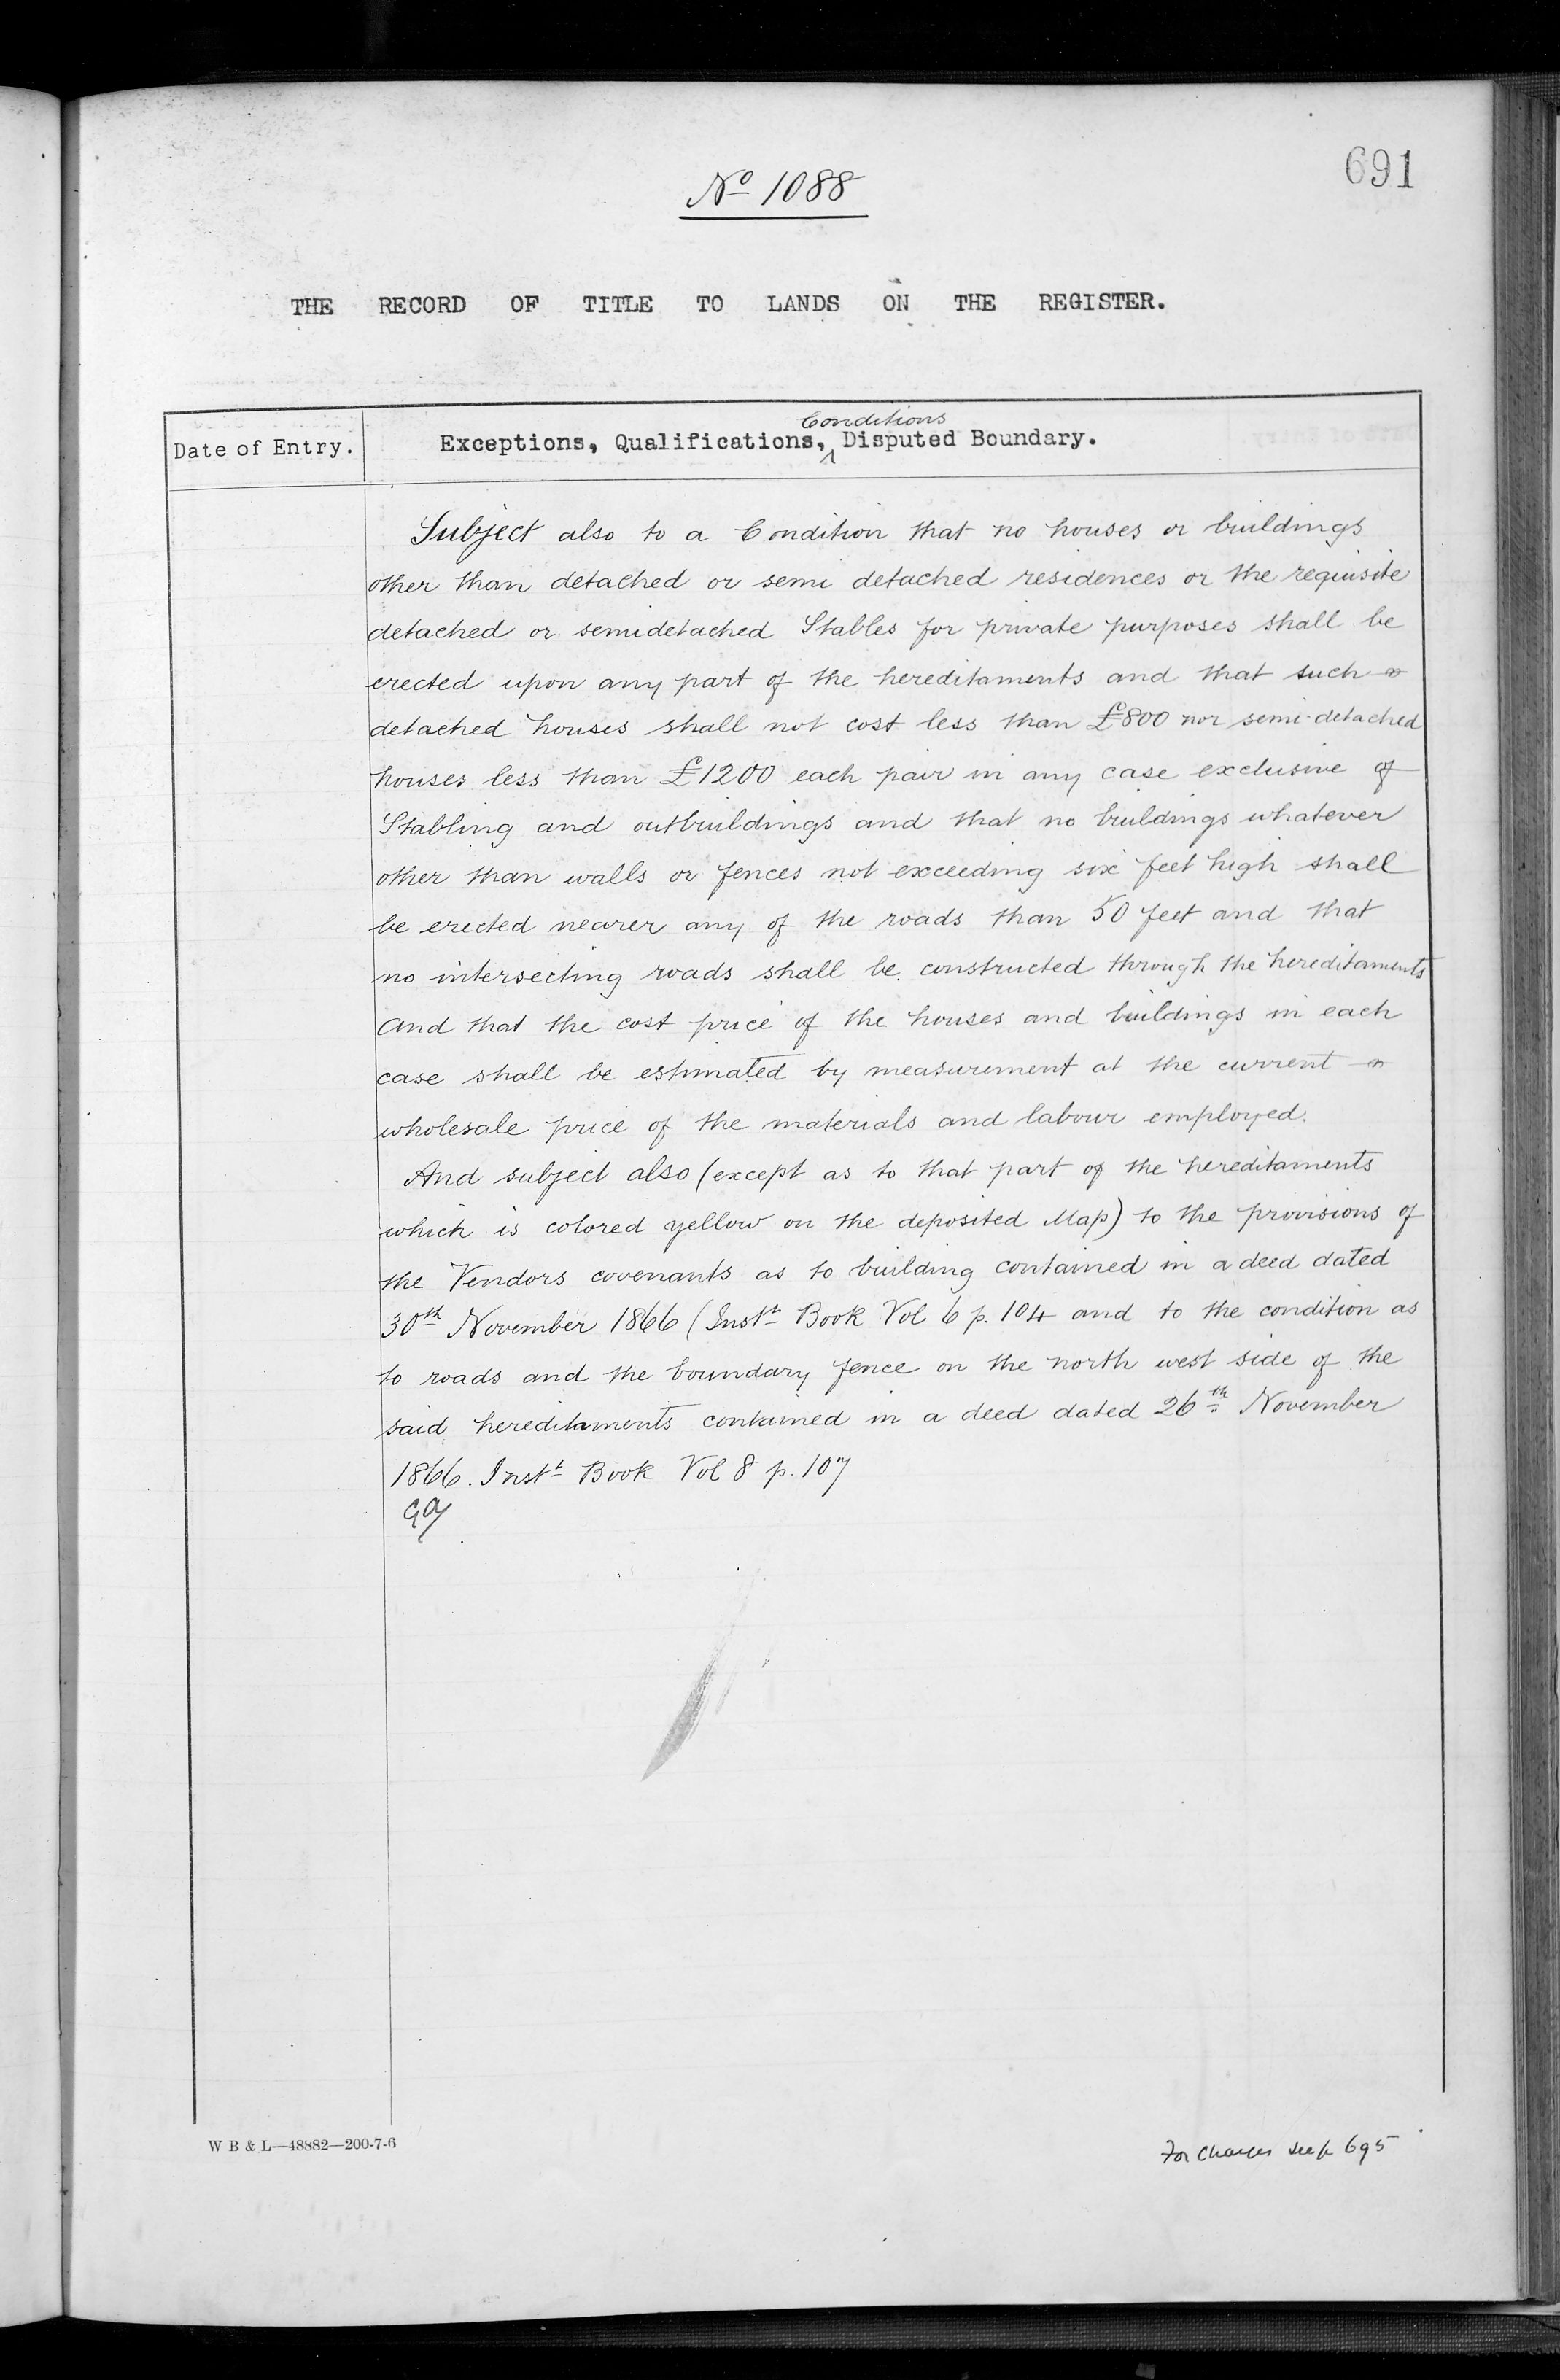 691
No 1088
THE RECORD OF TITLE TO LANDS ON THE REGISTER.
Conditions
Date of Entry. Exceptions, Qualifications, Disputed Boundary.
Subject also to a Condition that no houses or buildings
other than detached or semi detached residences or the requisite
detached or semidetached Stables for private purposes shall be
erected upon any part of the hereditaments and that such
detached houses shall not cost less than £800 nor semi-detached
houses less than £1200 each pair in any case exclusive of
Stabling and outbuildings and that no buildings whatever
other than walls or fences not exceeding six feet high shall
be erected nearer any of the roads than 50 feet and that
no intersecting roads shall be constructed through the hereditaments
And that the cost price of the houses and buildings in each
case shall be estimated by measurement at the current
wholesale price of the materials and labour employed.
And subject also (except as to that part of the hereditaments
which is colored yellow on the deposited Map) to the provisions of
the Vendors covenants as to building contained in a deed dated
30th November 1866 (Instt Book Vol 6 p. 104 and to the condition as
to roads and the boundary fence on the north west side of the
said hereditaments contained in a deed dated 26th November
1866. Instt Book Vol 8 p. 107
W B & L—48882—200-7-6
For Charges see p 695